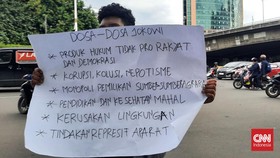 DOSA-DOSA JOKOWI
* PRODUK HUKUM TIDAK PRO RAKYAT
DAN DEMOKRASI
* KORUPSI, KOLUSI, NEPOTISME
* MONOPOLI PEMILIKAN SUMBER-SUMBER AGRARIA
* PENDIDIKAN DAN KESEHATAN MAHAL
* KERUSAKAN LINGKUNGAN
* TINDAKAN REPRESIF APARAT
CNN
Indonesia